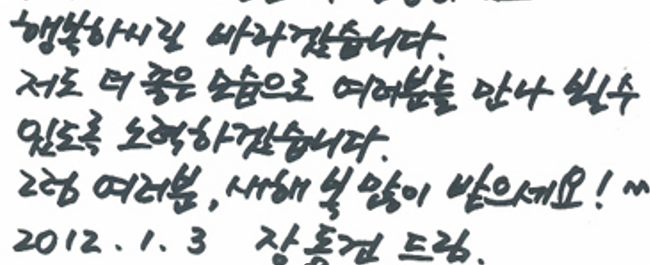 행복하시길 바라겠습니다.
저도 더 좋은 모습으로 여러분들 만나 뵐 수
있도록 노력하겠습니다.
그럼 여러분, 새해 복 많이 받으세요! ~
2012. 1. 3 장동건 드림.